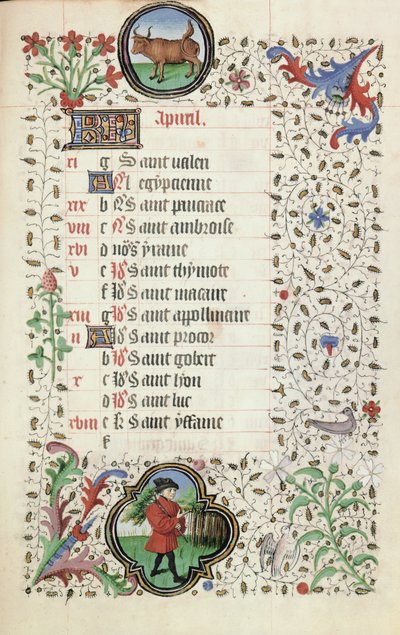 KL Apuril.
xi g Saint valen
A N egypcienne
xix b N Saint pancrace
viii c N Saint ambroise
xvi d nos yraine
v e Id Saint thymote
f Id Saint macaire
xiii g Id Saint appollinaire
ii A Id Saint procor
b Id Saint gobert
x c Id Saint lyon
d Id Saint luc
xviii e K Saint yffaine
f